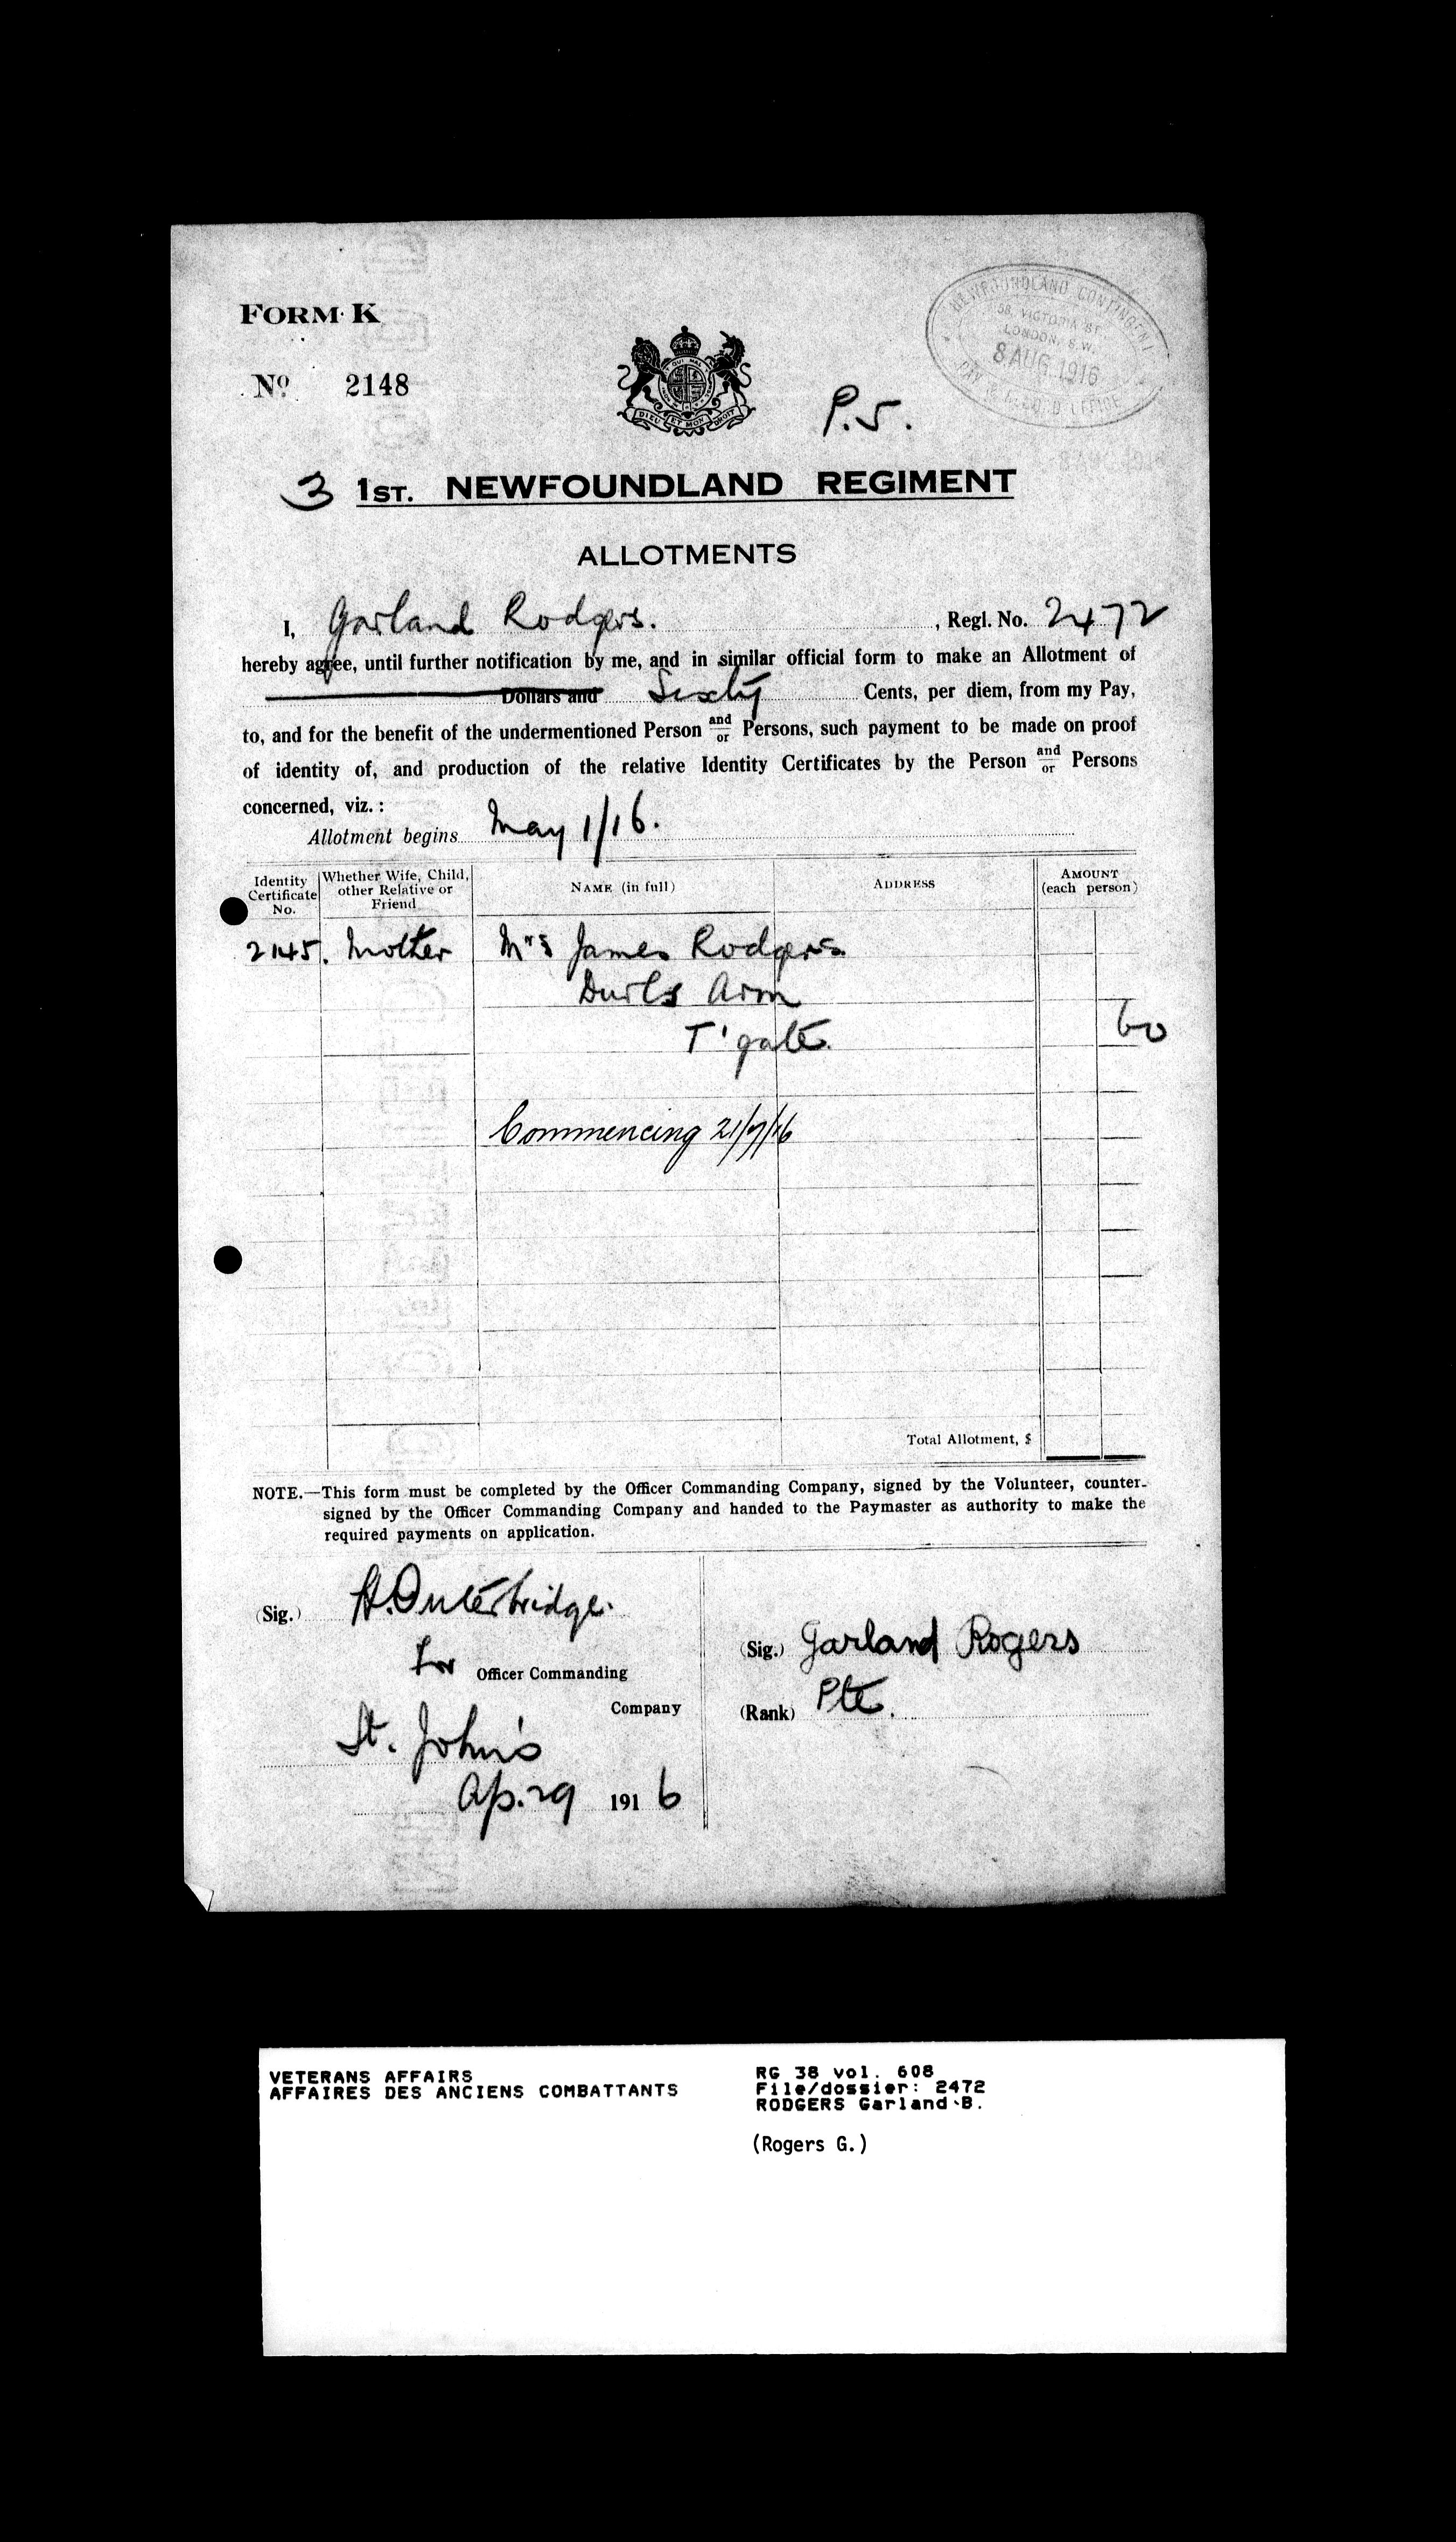 FORM K
NEWFOUNDLAND CONTINGENT
58, VICTORIA ST.
LONDON, S.W.
8 AUG 1916
PAY & RECORD OFFICE
No 2148
DIEU ET MON DROIT
P.S.
3 1ST. NEWFOUNDLAND REGIMENT
ALLOTMENTS
I, Garland Rodgers. , Regl. No. 2472
hereby agree, until further notification by me, and in similar official form to make an Allotment of
Dollars and Sixty Cents, per diem, from my Pay,
to, and for the benefit of the undermentioned Person and/or Persons, such payment to be made on proof
of identity of, and production of the relative Identity Certificates by the Person and/or Persons
concerned, viz. :
Allotment begins May 1/16.
Identity Certificate No. Whether Wife, Child, other Relative or Friend NAME (in full) ADDRESS AMOUNT (each person)
2145. Mother Mrs James Rodgers
Durls Arm
T'gate. 60
Commencing 21/7/16
Total Allotment, $
NOTE.—This form must be completed by the Officer Commanding Company, signed by the Volunteer, counter-
signed by the Officer Commanding Company and handed to the Paymaster as authority to make the
required payments on application.
(Sig.) H. Outerbridge.
for Officer Commanding
Company
St. John's
Ap. 29 1916
(Sig.) Garland Rogers
(Rank) Pte.
VETERANS AFFAIRS
AFFAIRES DES ANCIENS COMBATTANTS
RG 38 vol. 608
File/dossier: 2472
RODGERS Garland B.
(Rogers G.)